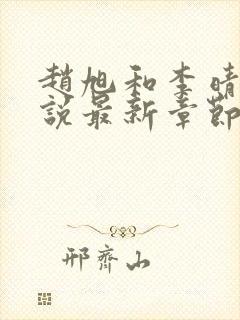 趙旭和李晴
說最新章節
邢齊山